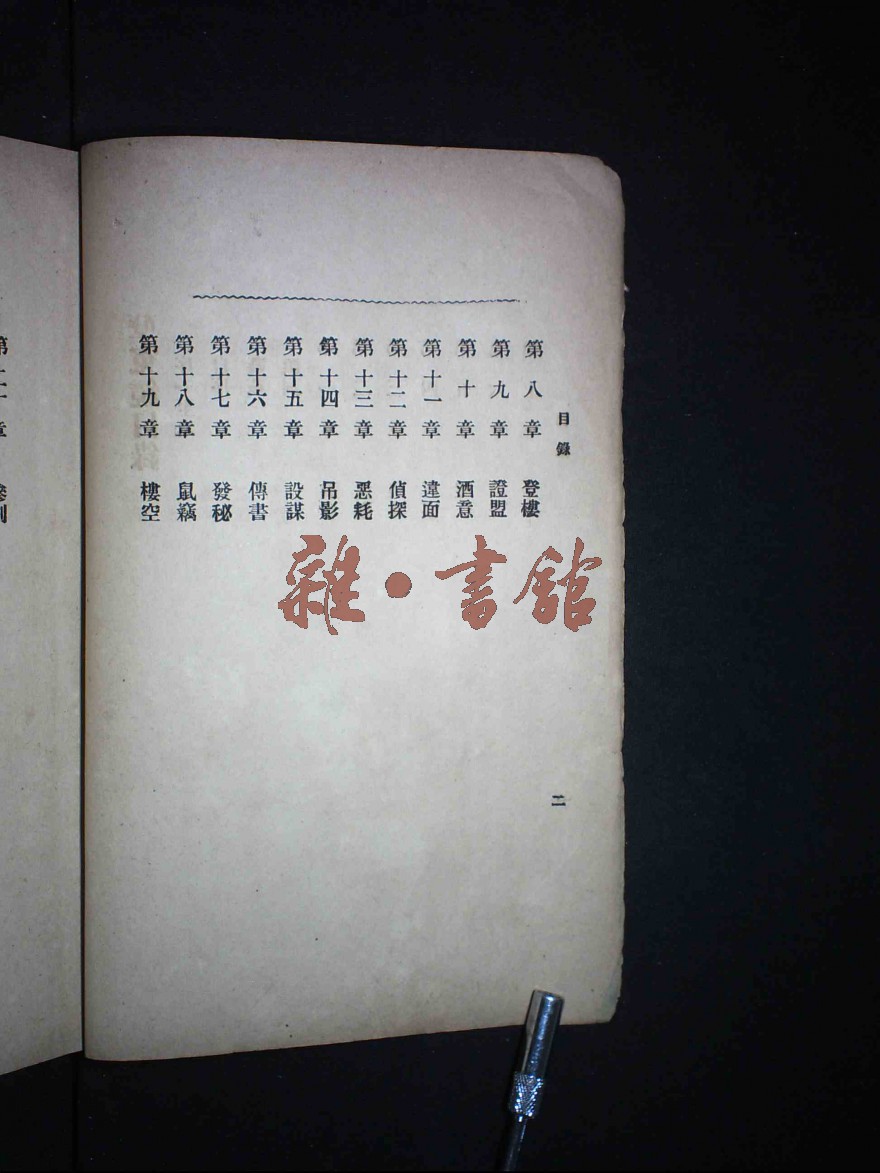 目錄
第八章 登樓
第九章 證盟
第十章 酒意
第十一章 違面
第十二章 偵探
第十三章 惡耗
第十四章 吊影
第十五章 設謀
第十六章 傳書
第十七章 發秘
第十八章 鼠竊
第十九章 樓空
二
雜·書館